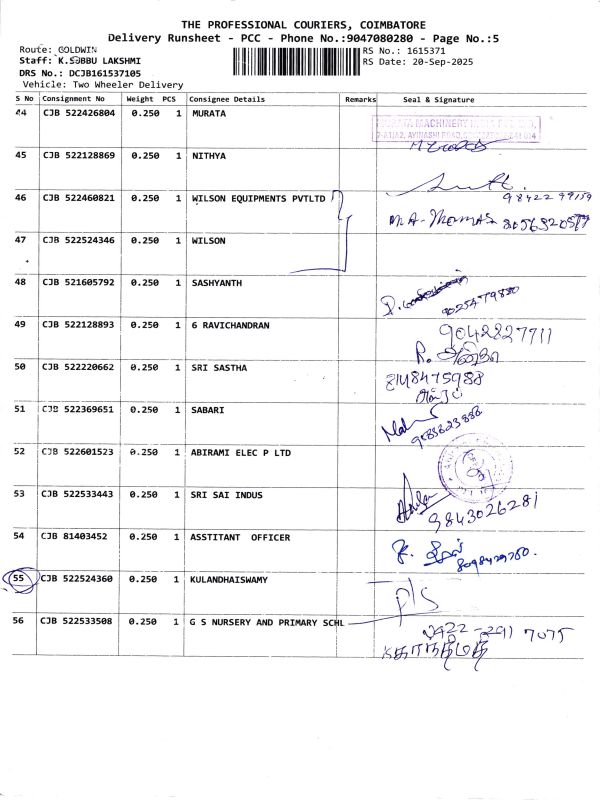 THE PROFESSIONAL COURIERS, COIMBATORE
Delivery Runsheet - PCC - Phone No.:9047080280 - Page No.:5
Route: GOLDWIN
RS No.: 1615371
Staff: K.SUBBU LAKSHMI
RS Date: 20-Sep-2025
DRS No.: DCJB161537105
Vehicle: Two Wheeler Delivery
S No Consignment No Weight PCS Consignee Details Remarks Seal & Signature
44 CJB 522426804 0.250 1 MURATA
MURATA MACHINERY INDIA PVT. LTD.,
45 CJB 522128869 0.250 1 NITHYA
46 CJB 522460821 0.250 1 WILSON EQUIPMENTS PVTLTD
M.A-Thomas
47 CJB 522524346 0.250 1 WILSON
48 CJB 521605792 0.250 1 SASHYANTH
49 CJB 522128893 0.250 1 6 RAVICHANDRAN 9042827711
50 CJB 522220662 0.250 1 SRI SASTHA 8148475988
51 CJB 522369651 0.250 1 SABARI
52 CJB 522601523 0.250 1 ABIRAMI ELEC P LTD
53 CJB 522533443 0.250 1 SRI SAI INDUS
9843026281
54 CJB 81403452 0.250 1 ASSTITANT OFFICER
55 CJB 522524360 0.250 1 KULANDHAISWAMY
56 CJB 522533508 0.250 1 G S NURSERY AND PRIMARY SCHL
0422-291 7075